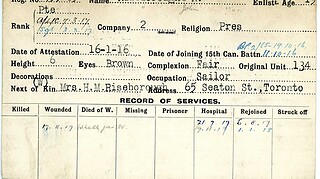 Enlist- Age
Pte.
Rank Company 2 Religion Pres
Date of Attestation 16-1-16 Date of Joining 15th Can. Battn.
Height 6 Eyes Brown Complexion Fair Original Unit 134
Decorations Occupation Sailor
Next of Kin Mrs. H.M. Riseborough Address 65 Seaton St., Toronto
RECORD OF SERVICES.
Killed Wounded Died of W. Missing Prisoner Hospital Rejoined Struck off